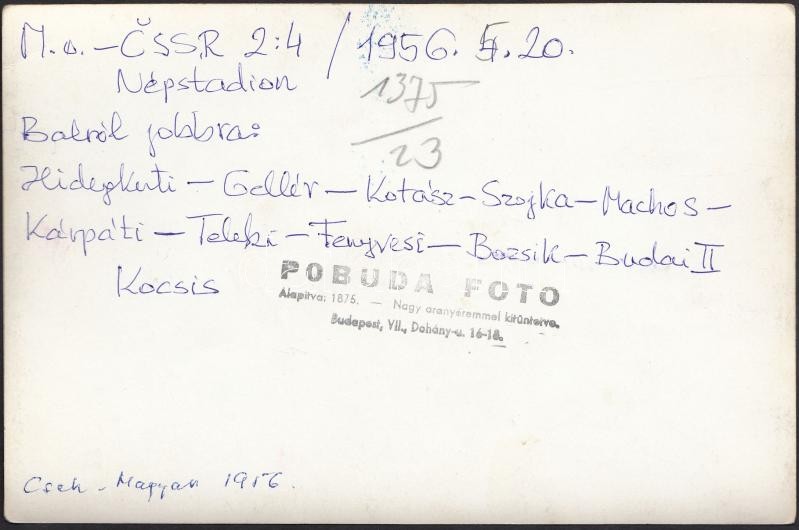 M.o. – ČSSR 2:4 / 1956. 5. 20.
Népstadion
1375
23
Balról jobbra:
Hidegkuti – Gellér – Kotász – Szojka – Machos –
Kárpáti – Teleki – Fenyvesi – Bozsik – Budai II
Kocsis
POBUDA FOTO
Alapitva: 1875. — Nagy aranyéremmel kitüntetve.
Budapest, VII., Dohány-u. 16-18.
Cseh - Magyar 1956.